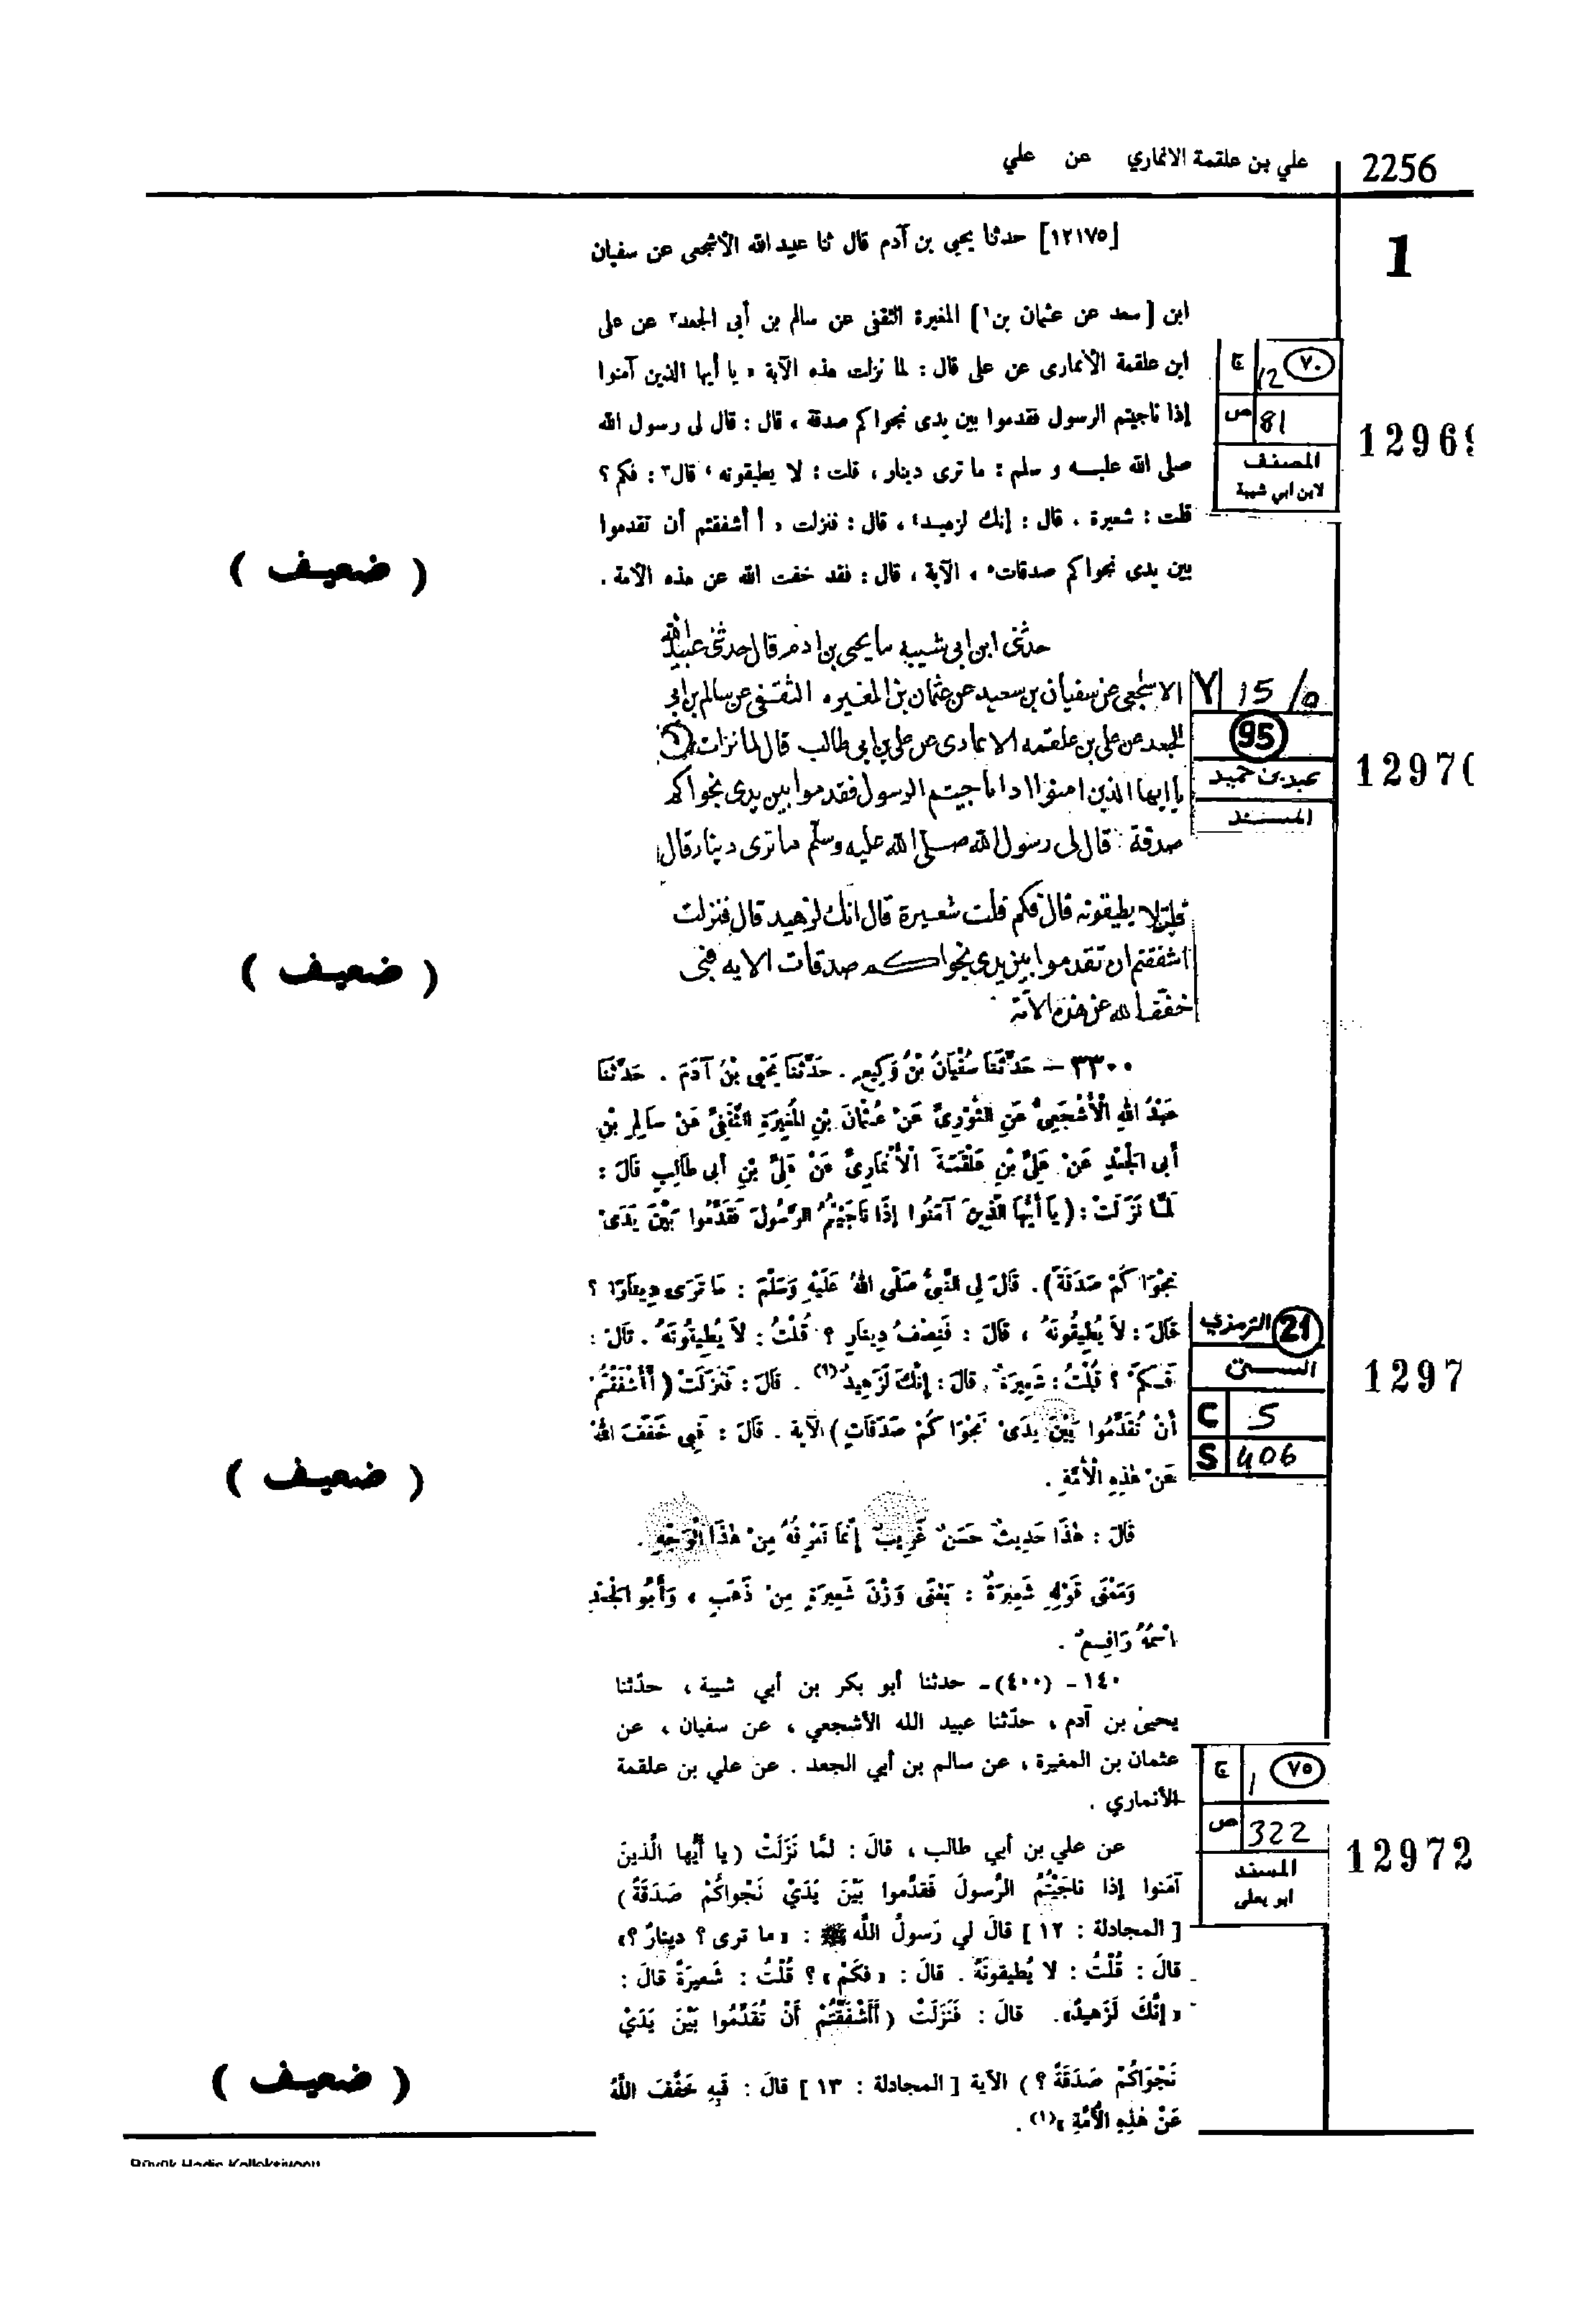 2256 علي بن علقمة الانماري عن علي
1
[١٢١٧٥] حدثنا يحيى بن آدم قال ثنا عبيد الله الأشجعى عن سفيان
ابن [ سعد عن عثمان بن١ ] المغيرة الثقفى عن سالم بن أبى الجعد٢ عن على
ابن علقمة الأنمارى عن على قال : لما نزلت هذه الآية « يا أيها الذين آمنوا
إذا ناجيتم الرسول فقدموا بين يدى نجواكم صدقة ، قال : قال لى رسول الله
صلى الله عليه و سلم : ما ترى دينار ، قلت : لا يطيقونه ، قال٣ : فكم ؟
قلت : شعيرة ، قال : إنك لزهيد٤ ، قال : فنزلت « أ أشفقتم أن تقدموا
بين يدى نجواكم صدقات٥ ، الآية ، قال : فقد خفت الله عن هذه الأمة .
٧٠ ج 12
ص 81
المصنف
لابن ابي شيبة
12969
( ضعيف )
حدثنى ابن ابى شيبه ما يحيى بن ادم قال حدثنى عبيدالله
الاشجعى عن سفيان بن سعيد عن عثمان بن المغيره الثقفى عن سالم بن ابى
الجعد عن على بن علقمه الانمادى عن على بن ابى طالب قال لما نزلت
يا ايها الذين امنوا اذا ناجيتم الرسول فقدموا بين يدى نجواكم
صدقة : قال لى رسول الله صلى الله عليه وسلم ما ترى دينار قال
قلت لا يطيقونه قال فكم قلت شعيرة قال انك لزهيد قال فنزلت
اشفقتم ان تقدموا بين يدى نجواكم صدقات الايه فبى
خفف الله عن هذه الامة
Y 15/
95
عبد بن حميد
المسند
1297
( ضعيف )
٣٣٠٠ – حَدَّثَنَا سُفْيَانُ بْنُ وَكِيعٍ . حَدَّثَنَا يَحْيَى بْنُ آدَمَ . حَدَّثَنَا
عَبْدُ اللهِ الْأَشْجَعِىُّ عَنِ الثَّوْرِىِّ عَنْ عُثْمَانَ بْنِ الْمُغِيرَةِ الثَّقَفِىِّ عَنْ سَالِمِ بْنِ
أَبِى الْجَعْدِ عَنْ عَلِىِّ بْنِ عَلْقَمَةَ الْأَنْمَارِىِّ عَنْ عَلِىِّ بْنِ أَبِى طَالِبٍ قَالَ :
لَمَّا نَزَلَتْ : ( يَا أَيُّهَا الَّذِينَ آمَنُوا إِذَا نَاجَيْتُمُ الرَّسُولَ فَقَدِّمُوا بَيْنَ يَدَىْ
نَجْوَاكُمْ صَدَقَةً ) . قَالَ لِى النَّبِىُّ صَلَّى اللهُ عَلَيْهِ وَسَلَّمَ : مَا تَرَى، دِينَارًا ؟
قَالَ : لَا يُطِيقُونَهُ ، قَالَ : فَنِصْفُ دِينَارٍ ؟ قُلْتُ : لَا يُطِيقُونَهُ . قَالَ :
فَكَمْ ؟ قُلْتُ : شَعِيرَةٌ . قَالَ : إِنَّكَ لَزَهِيدٌ(١) . قَالَ : فَنَزَلَتْ ( أَأَشْفَقْتُمْ
أَنْ تُقَدِّمُوا بَيْنَ يَدَىْ نَجْوَاكُمْ صَدَقَاتٍ ) الْآيَةَ . قَالَ : فَبِى خَفَّفَ اللهُ
عَنْ هٰذِهِ الْأُمَّةِ .
21 الترمذي
السنن
C 5
S 406
1297
( ضعيف )
قَالَ : هٰذَا حَدِيثٌ حَسَنٌ غَرِيبٌ إِنَّمَا نَعْرِفُهُ مِنْ هٰذَا الْوَجْهِ .
وَمَعْنَى قَوْلِهِ شَعِيرَةٌ : يَعْنَى وَزْنَ شَعِيرَةٍ مِنْ ذَهَبٍ ، وَأَبُو الْجَعْدِ
اسْمُهُ رَافِعٌ .
١٤٠ - (٤٠٠) - حدثنا أبو بكر بن أبي شيبة ، حدّثنا
يحيىٰ بن آدم ، حدّثنا عبيد الله الأشجعي ، عن سفيان ، عن
عثمان بن المغيرة ، عن سالم بن أبي الجعد . عن علي بن علقمة
الأنماري .
عن علي بن أبي طالب ، قالَ : لمَّا نَزَلَتْ ( يا أيُّها الَّذينَ
آمَنوا إذا ناجَيْتُمُ الرَّسولَ فَقدِّموا بَيْنَ يَدَيْ نَجْواكُمْ صَدَقَةً )
[ المجادلة : ١٢ ] قالَ لي رَسولُ اللَّهِ ﷺ : « ما ترى ؟ دينارٌ ؟»
قالَ : قُلْتُ : لا يُطيقونَهُ . قالَ : « فكَمْ » ؟ قُلْتُ : شَعيرَةً قالَ :
« إنَّكَ لَزَهيدٌ» . قالَ : فَنَزَلَتْ ( أَأَشْفَقْتُمْ أَنْ تُقَدِّمُوا بَيْنَ يَدَيْ
نَجْوَاكُمْ صَدَقَةً ؟ ) الآية [ المجادلة : ١٣ ] قالَ : فَبِهِ خَفَّفَ اللَّهُ
عَنْ هٰذِهِ الأُمَّةِ »(١) .
٧٥ ج 1
ص 322
المسند
ابو يعلى
12972
( ضعيف )
Büyük Hadis Kolleksiyonu